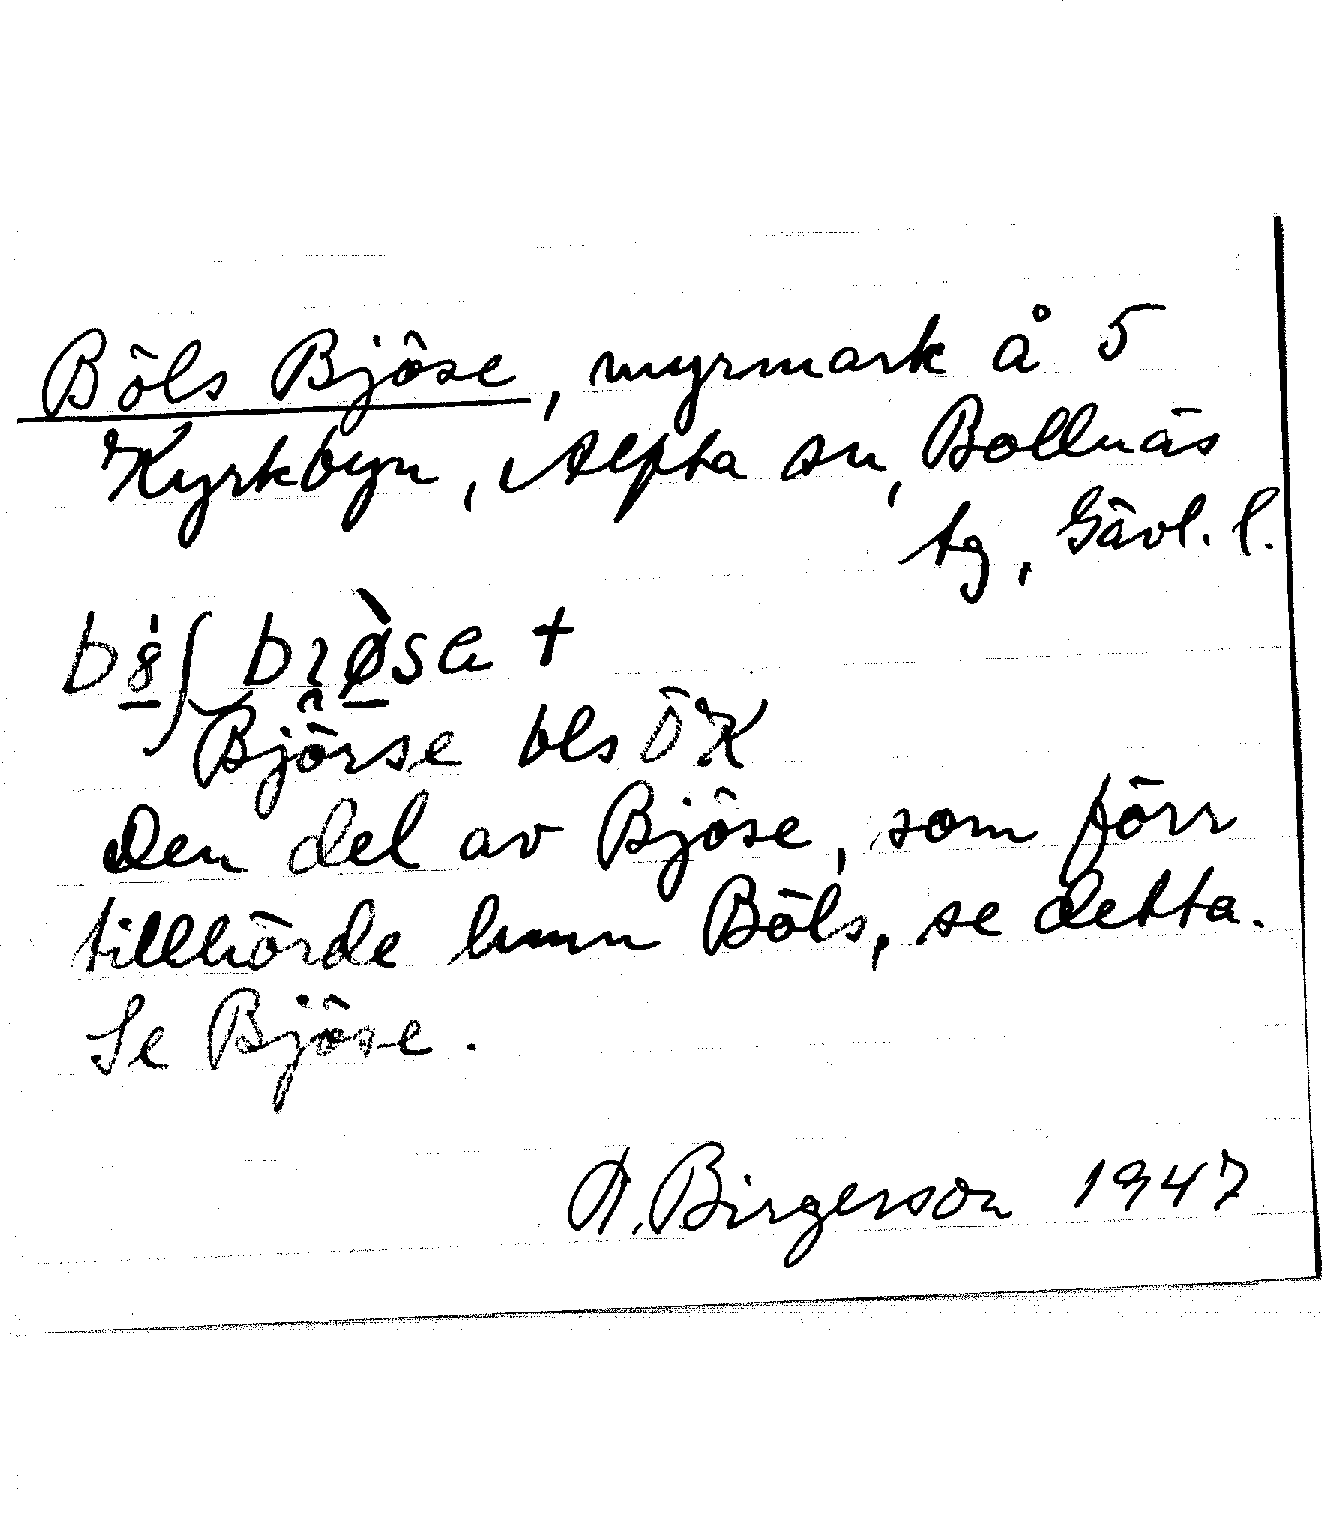 Böls Bjöse, myrmark å 5
Kyrkbyn, Alfta sn, Bollnäs
tg, Gävl. l.
bɩ̯ø̀sa +
Björse bls ÖK
Den del av Bjöse, som förr
tillhörde hmn Böls, se detta.
Se Bjöse.
A. Birgerson 1947